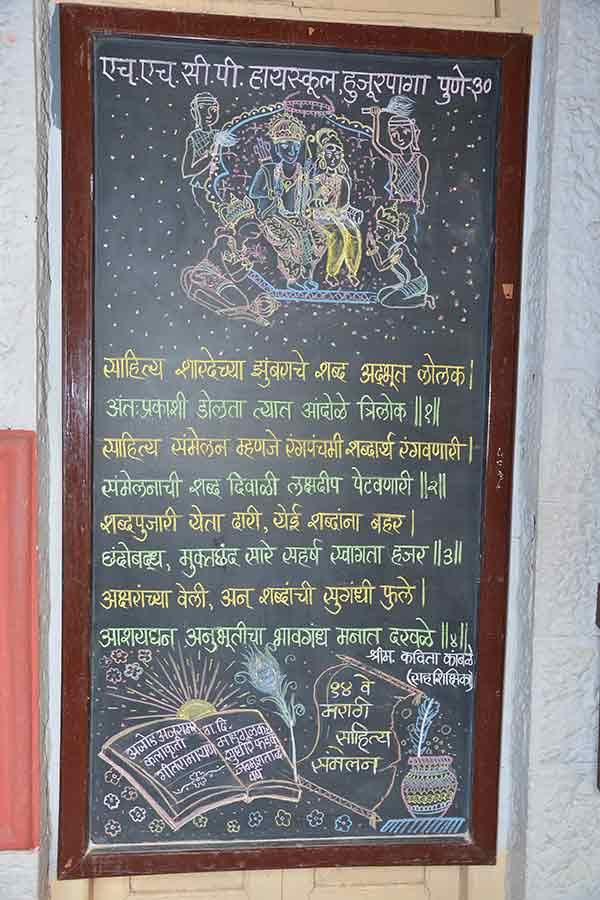 एच.एच.सी.पी. हायस्कूल, हुजूरपागा पुणे-३०
साहित्य शारदेच्या झुंबराचे शब्द अद्भूत लोलक |
अंतःप्रकाशी डोलता त्यात आंदोळे त्रिलोक ||१||
साहित्य संमेलन म्हणजे रंगपंचमी शब्दार्थ रंगवणारी |
संमेलनाची शब्द दिवाळी लक्षदीप पेटवणारी ||२||
शब्दपुजारी येता दारी, येई शब्दांना बहर |
छंदोबद्ध, मुक्तछंद सारे सहर्ष स्वागता हजर ||३||
अक्षरांच्या वेली, अन् शब्दांची सुगंधी फुले |
आशयघन अनुभूतीचा भावगंध मनात दरवळे ||४||
श्रीम. कविता कांबळे
(सहशिक्षिका)
अजोड अजरामर
कलाकृती
गीतरामायण
ग. दि.
माडगूळकर
सुधीर फडके
जन्मशताब्दी
वर्ष
९४ वे
मराठी
साहित्य
संमेलन